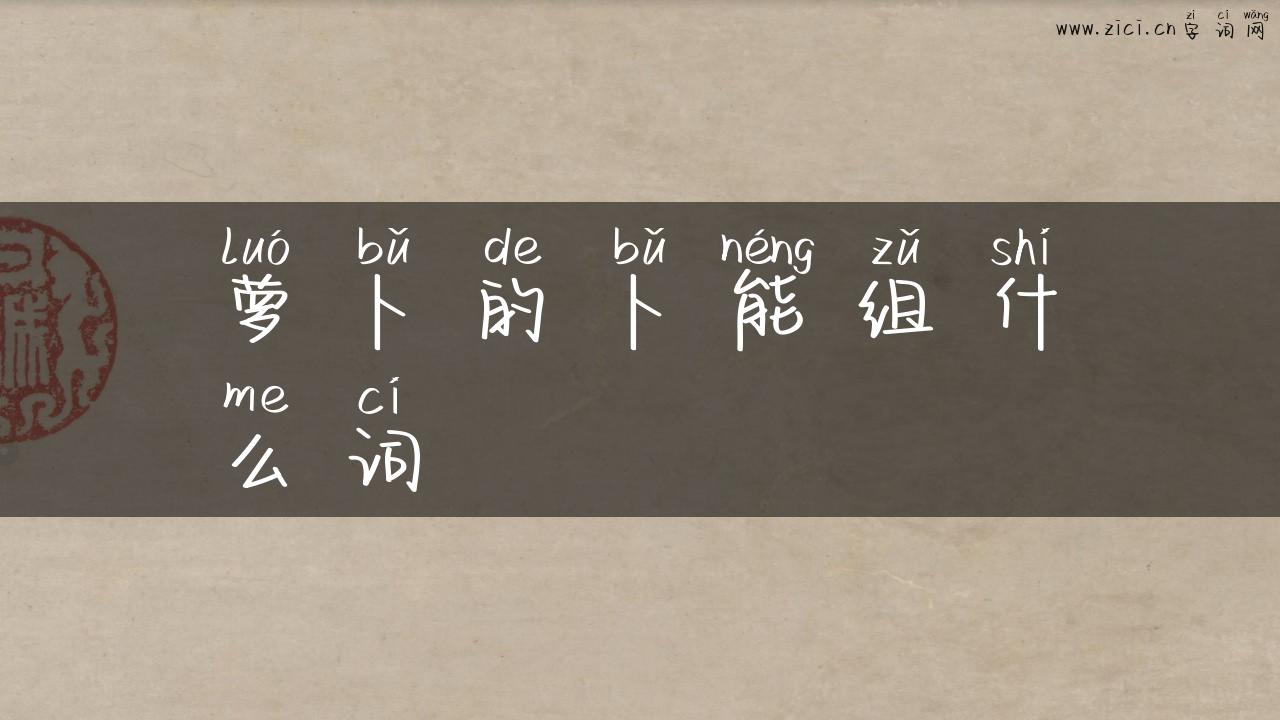 zì cí wǎng
www.zici.cn 字词网
luó bǔ de bǔ néng zǔ shí
萝卜的卜能组什
me cí
么词